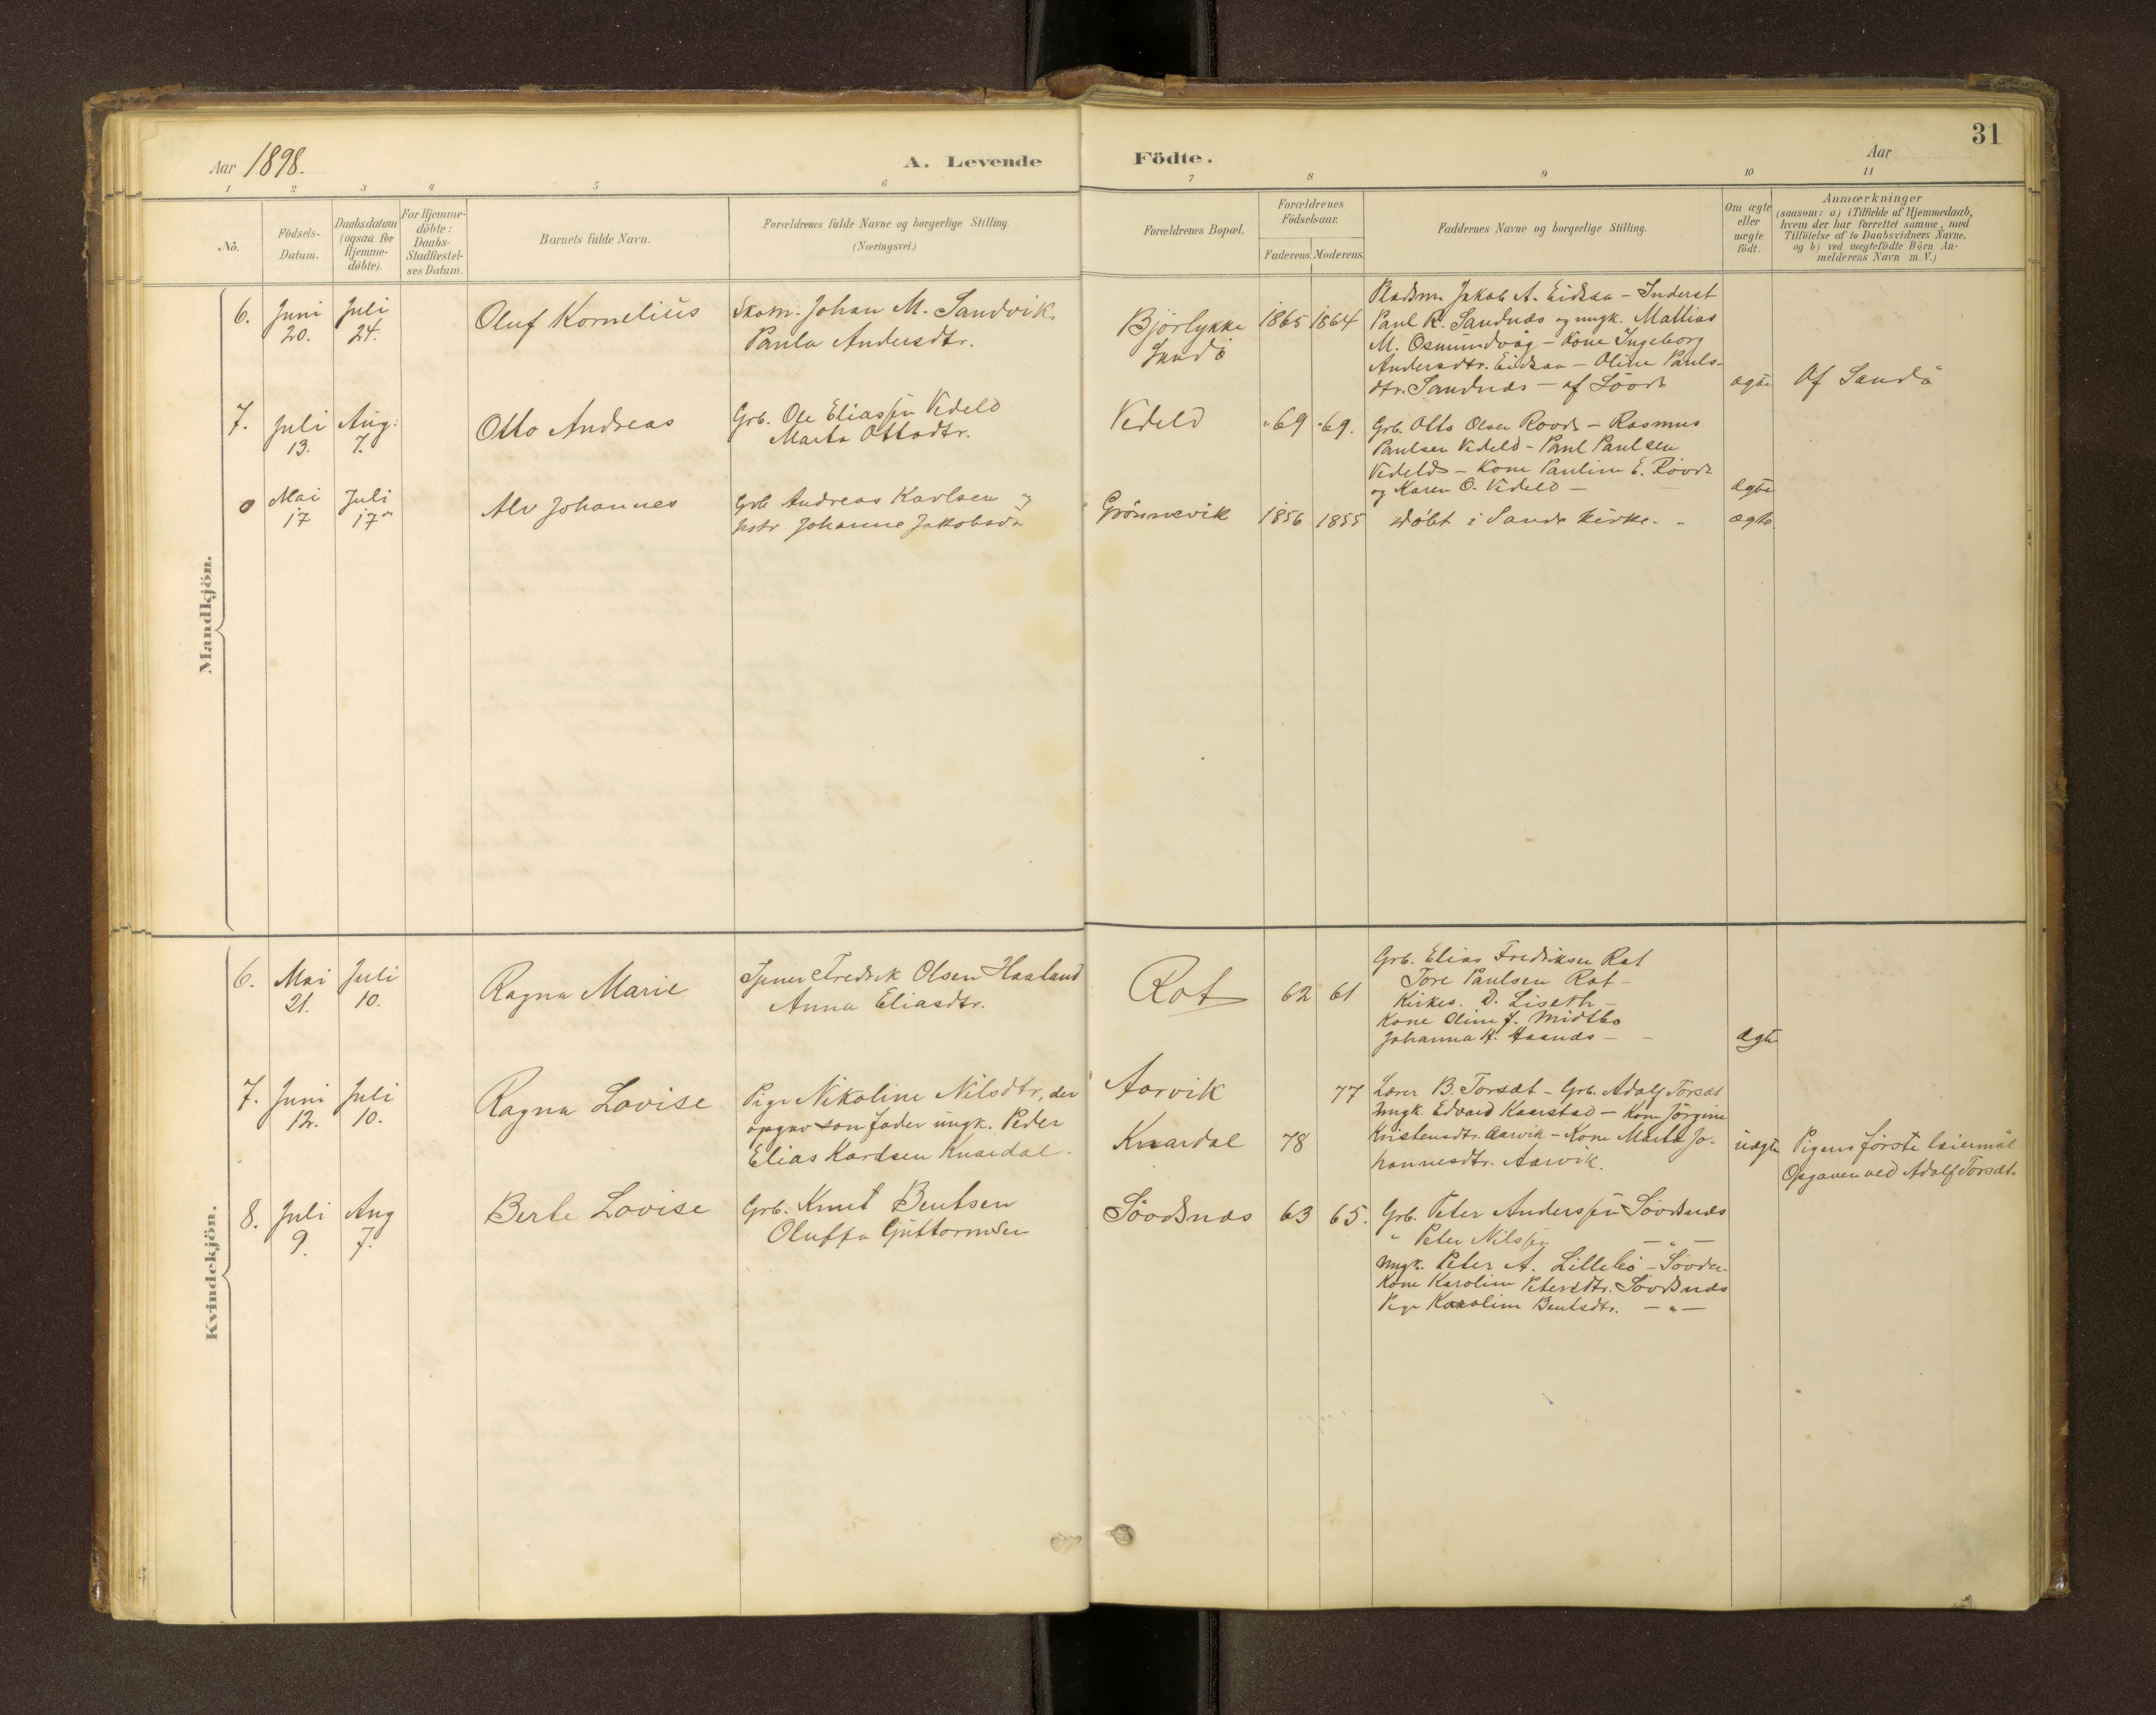 Aar 1898.
A. Levende Födte.
Aar
31
1 2 3 4 5 6 7 8 9 10 11
No.
Födsels-
Datum.
Daabsdatum
(ogsaa for
Hjemme-
döbte).
For Hjemme-
döbte:
Daabs-
Stadfæstel-
ses Datum.
Barnets fulde Navn.
Forældrenes fulde Navne og borgerlige Stilling.
(Næringsvei.)
Forældrenes Bopæl.
Forældrenes
Födselsaar.
Faderens. Moderens.
Faddernes Navne og borgerlige Stilling.
Om ægte
eller
uægte
födt.
Anmærkninger
(saasom: a) i Tilfælde af Hjemmedaab,
hvem der har forrettet samme, med
Tilföielse af to Daabsvidners Navne,
og b) ved uægtefödte Börn An-
melderens Navn m. V.)
Mandkjön.
6.
Juni
20.
Juli
24.
Oluf Kornelius
Skom. Johan M. Sandvik
Paula Andersdtr.
Björlykke
Sandö
1865 1864
Pladsm. Jakob A. Eidsaa – Inderst
Paul R. Sandnæs og ungk. Mattias
M. Osmundvåg – Kone Ingeborg
Andersdtr. Eidsaa – Oline Pauls-
dtr. Sandnæs – af Söovde
ægte
Af Sandö
7.
Juli
13.
Aug:
7.
Otto Andreas
Grb. Ole Eliassen Vedeld
Marta Ottodtr.
Vedeld
"69 "69.
Grb. Otto Olsen Roovde – Rasmus
Paulsen Vedeld – Paul Paulsen
Vedeld – Kone Pauline E. Röovde
og Karen O. Vedeld –
Ægte
0
Mai
17
Juli
17
Alv Johannes
Grb Andreas Karlsen og
hstr Johanne Jakobsd
Grönnevik
1856 1855
döbt i Sande Kirke. –
ægte.
Kvindekjön.
6.
Mai
21.
Juli
10.
Ragna Marie
Fredrik Olsen Haaland
Anna Eliasdtr.
Rot
62 61
Grb. Elias Fredriksen Rot
Tore Paulsen Rot –
Kirkes. D. Liseth –
Kone Oline J. Midtbö
Johanna K. –
Ægte
7.
Juni
12.
Juli
10.
Ragna Lovise
Pige Nikoline Nilsdtr, der
opgav som fader ungk. Peder
Elias Karlsen Knardal.
Aarvik
Knardal
78
77
Lærer B. Torsæt – Grb. Adolf Torsæt
Ungk. Edvard Kaarstad – Kone Jörgine
Kristensdtr. Aarvik – Kone Marta Jo-
hannesdtr. Aarvik.
uægte
Pigens förste leiermål
Opgaven ved Adolf Torsæt.
8.
Juli
9.
Aug
7.
Berte Lovise
Grb. Knut Bentsen
Oluffa Guttormsen
Söovdsnæs
63 65.
Grb. Peter Anderssen Söovdsnæs
" Peter Nilssen – " –
Ungk. Peter A. Lillebö – Söovde
Kone Karoline Petersdtr. Söovdsnæs
Pige Karoline Bentsdtr. – " –